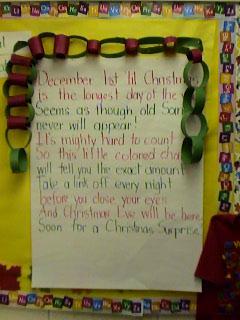 December 1st til Christmas
is the longest day of the
Seems as though old San
never will appear!
It's mighty hard to count
So this little colored cha
will tell you the exact amount
Take a link off every night
before you close your eyes
And Christmas Eve will be here
Soon for a Christmas Surprise